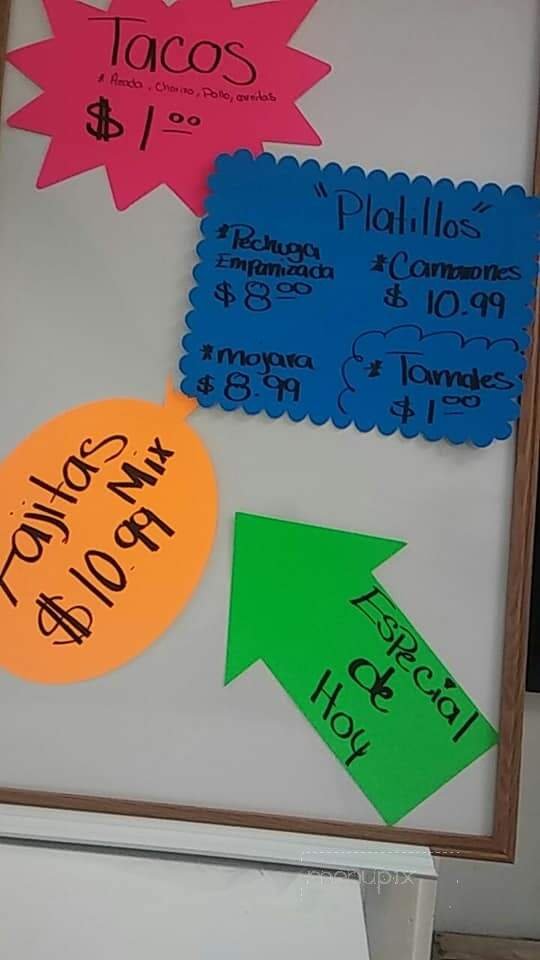 Tacos
* Asada, Chorizo, Pollo, carnitas
$1.00
"Platillos"
*Pechuga
Empanizada
$8.00
*Camarones
$10.99
*mojara
$8.99
*Tamales
$1.00
Fajitas
Mix
$10.99
Especial
de
Hoy
menupix